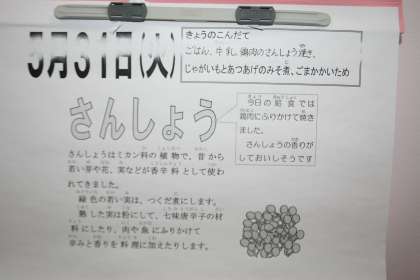 5月31日(火)
きょうのこんだて
ごはん、牛乳、鶏肉のさんしょう焼き、
じゃがいもとあつあげのみそ煮、ごまかかいため
さんしょう
今日の給食では
鶏肉にふりかけて焼き
ました。
さんしょうの香りが
しておいしそうです
さんしょうはミカン科の植物で、昔から
若い芽や花、実などが香辛料として使わ
れてきました。
緑色の若い実は、つくだ煮にします。
熟した実は粉にして、七味唐辛子の材
料にしたり、肉や魚にふりかけて
辛みと香りを料理に加えたりします。